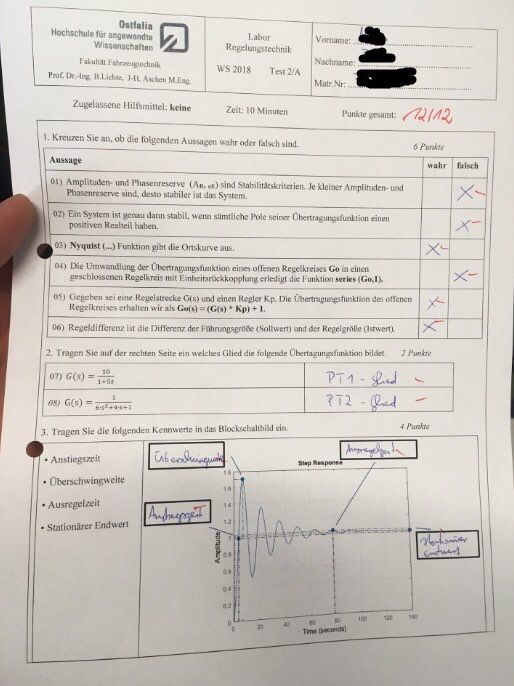 Ostfalia
Hochschule für angewandte
Wissenschaften
Fakultät Fahrzeugtechnik
Prof. Dr.-Ing. B.Lichte, J-H. Aschen M.Eng.
Labor
Regelungstechnik
WS 2018 Test 2/A
Vorname:
Nachname:
Matr.Nr:
Zugelassene Hilfsmittel: keine Zeit: 10 Minuten Punkte gesamt: 12/12
1. Kreuzen Sie an, ob die folgenden Aussagen wahr oder falsch sind. 6 Punkte
Aussage wahr falsch
01) Amplituden- und Phasenreserve (AR, αR) sind Stabilitätskriterien. Je kleiner Amplituden- und
Phasenreserve sind, desto stabiler ist das System. X
02) Ein System ist genau dann stabil, wenn sämtliche Pole seiner Übertragungsfunktion einen
positiven Realteil haben. X
03) Nyquist (...) Funktion gibt die Ortskurve aus. X
04) Die Umwandlung der Übertragungsfunktion eines offenen Regelkreises Go in einen
geschlossenen Regelkreis mit Einheitsrückkopplung erledigt die Funktion series (Go,1). X
05) Gegeben sei eine Regelstrecke G(s) und einen Regler Kp. Die Übertragungsfunktion des offenen
Regelkreises erhalten wir als Go(s) = (G(s) * Kp) + 1. X
06) Regeldifferenz ist die Differenz der Führungsgröße (Sollwert) und der Regelgröße (Istwert). X
2. Tragen Sie auf der rechten Seite ein welches Glied die folgende Übertagungsfunktion bildet. 2 Punkte
07) G(s) = 10/(1+5s) PT1 - Glied
08) G(s) = 3/(6·s²+4·s+1) PT2 - Glied
3. Tragen Sie die folgenden Kennwerte in das Blockschaltbild ein. 4 Punkte
• Anstiegszeit
• Überschwingweite
• Ausregelzeit
• Stationärer Endwert
Überschwingweite
Ausregelzeit
Anstiegszeit
stationärer
Endwert
Step Response
Amplitude
1.8
1.6
1.4
1.2
1
0.8
0.6
0.4
0.2
0
0 20 40 60 80 100 120 140
Time (seconds)